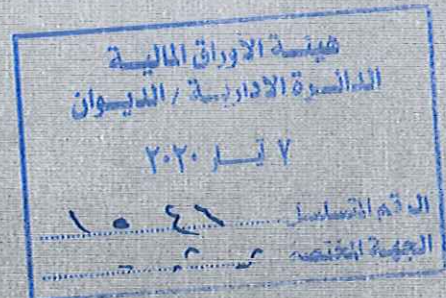 هيئة الأوراق المالية
الدائرة الادارية / الديوان
٧ أيار ٢٠٢٠
الرقم المتسلسل ١٠٤٦
الجهة المختصة